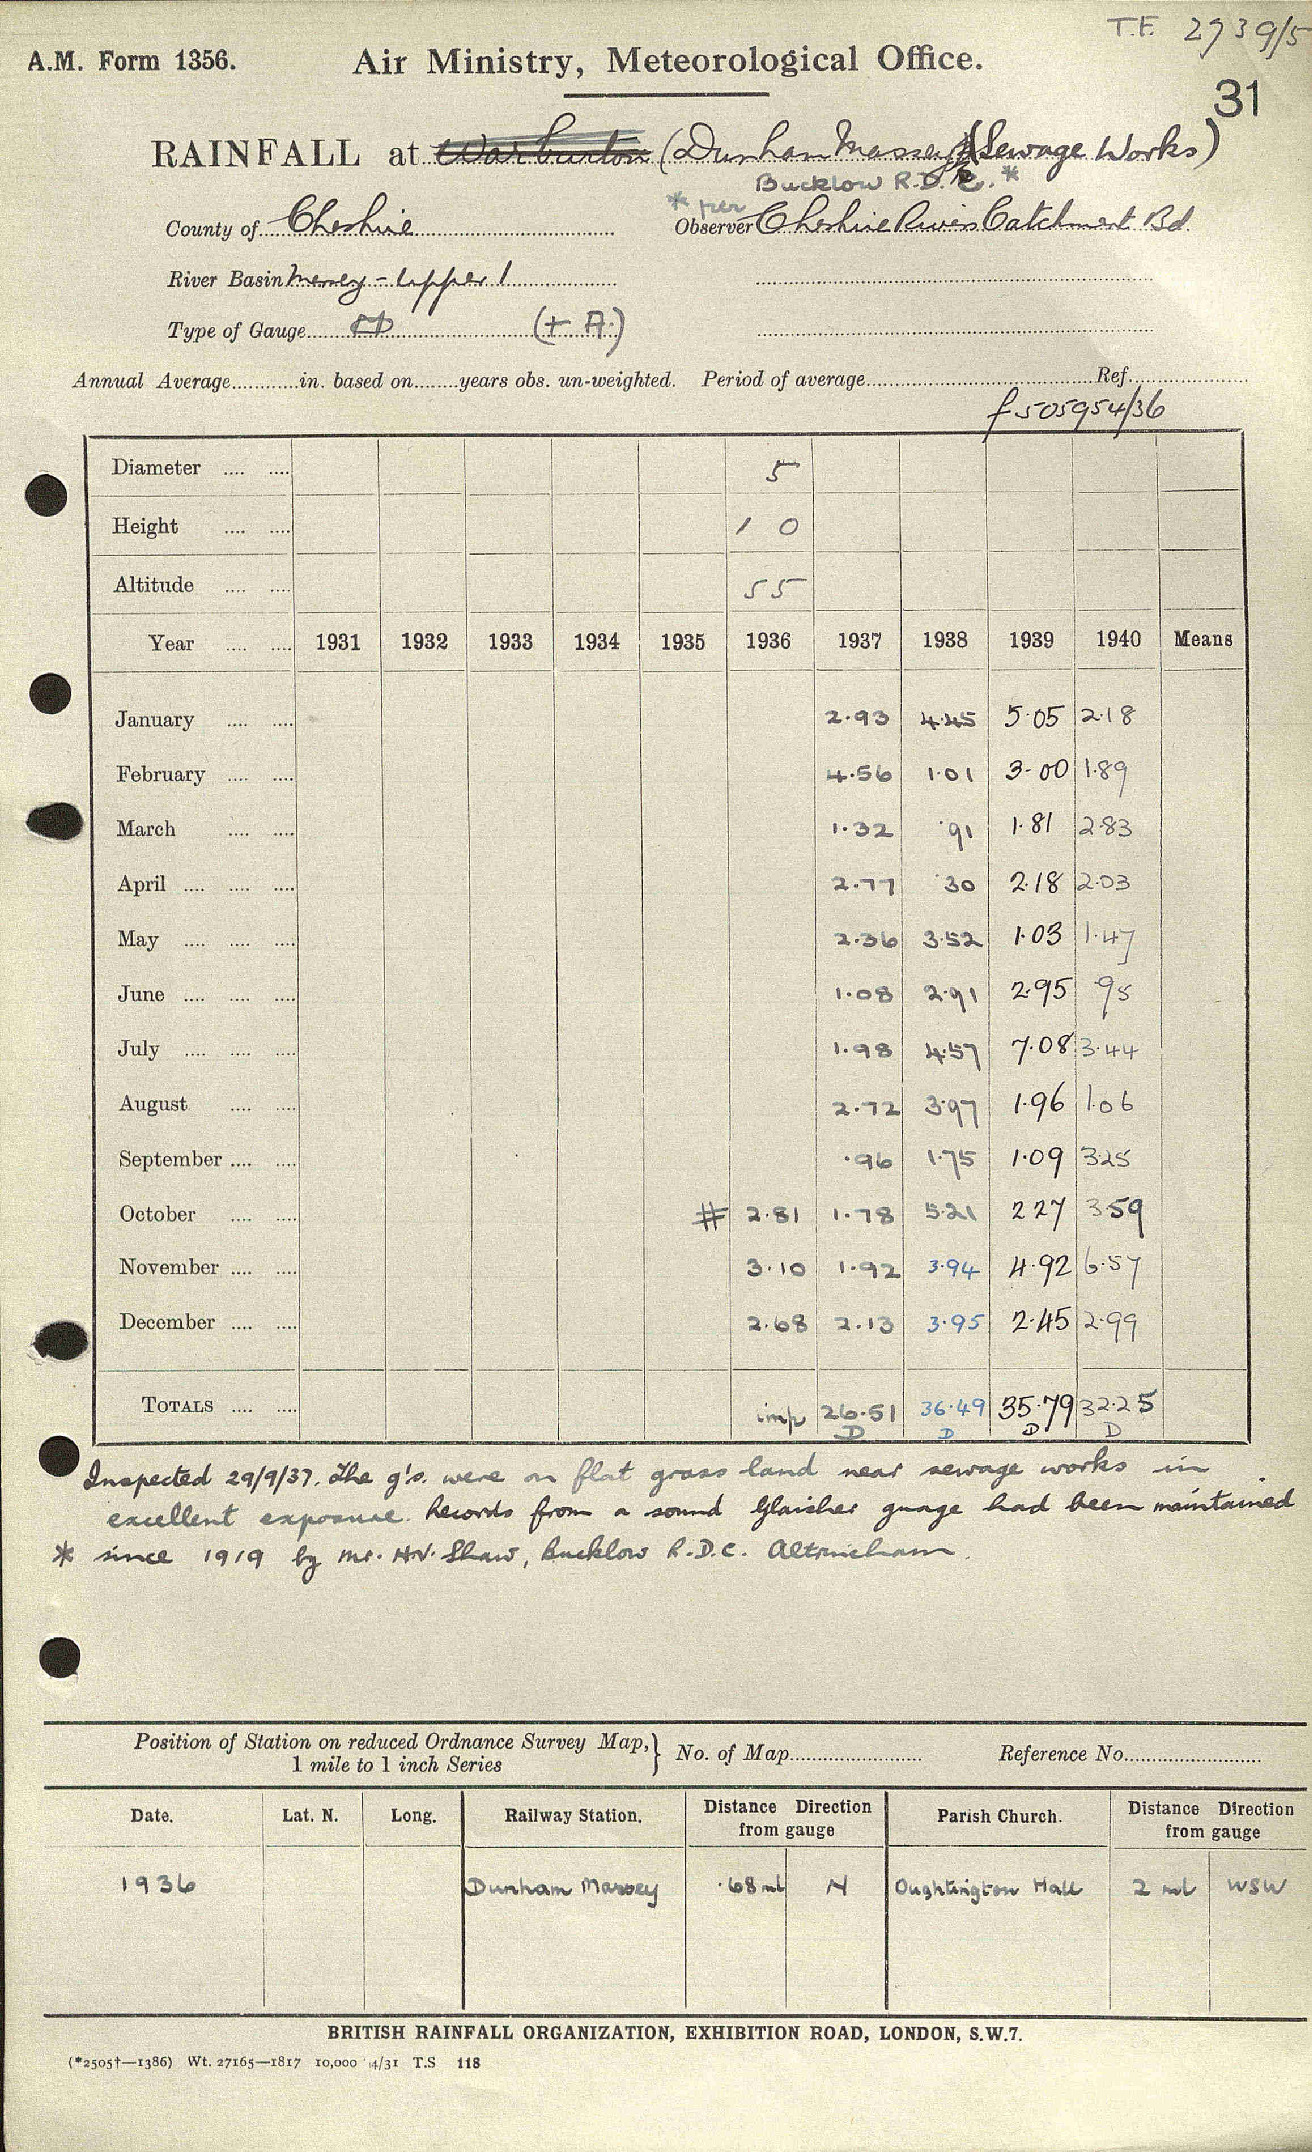 T.F. 2939/5
A.M. Form 1356. Air Ministry, Meteorological Office.
31
RAINFALL at Warburton (Dunham Massey (Sewage Works)
Bucklow R.D.C. *
* per
County of Cheshire Observer Cheshire Rivers Catchment Bd.
River Basin Mersey - Upper 1
Type of Gauge (+ A.)
Annual Average............in. based on........years obs. un-weighted. Period of average........................Ref.................
f 505954/36
Diameter .... .... 5
Height .... .... 1 0
Altitude .... .... 55
Year .... .... 1931 1932 1933 1934 1935 1936 1937 1938 1939 1940 Means
January .... .... 2.93 4.45 5.05 2.18
February .... .... 4.56 1.01 3.00 1.89
March .... .... 1.32 .91 1.81 2.83
April .... .... .... 2.77 .30 2.18 2.03
May .... .... .... 2.36 3.52 1.03 1.47
June .... .... .... 1.08 2.91 2.95 .95
July .... .... .... 1.98 4.57 7.08 3.44
August .... .... 2.72 3.97 1.96 1.06
September .... .... .96 1.75 1.09 3.25
October .... .... # 2.81 1.78 5.21 2.27 3.59
November .... .... 3.10 1.92 3.94 4.92 6.57
December .... .... 2.68 2.13 3.95 2.45 2.99
TOTALS .... .... imp 26.51 36.49 35.79 32.25
D D D D
Inspected 29/9/37. The g's. were on flat grass land near sewage works in
excellent exposure. Records from a sound Glaisher guage had been maintained
* since 1919 by Mr. H.V. Shaw, Bucklow R.D.C. Altrincham.
Position of Station on reduced Ordnance Survey Map, } No. of Map........................ Reference No.........................
1 mile to 1 inch Series
Date. Lat. N. Long. Railway Station. Distance Direction Parish Church. Distance Direction
from gauge from gauge
1936 Dunham Massey .68 ml N Oughtrington Hall 2 ml WSW
BRITISH RAINFALL ORGANIZATION, EXHIBITION ROAD, LONDON, S.W.7.
(*2505†—1386) Wt. 27165—1817 10,000 4/31 T.S 118